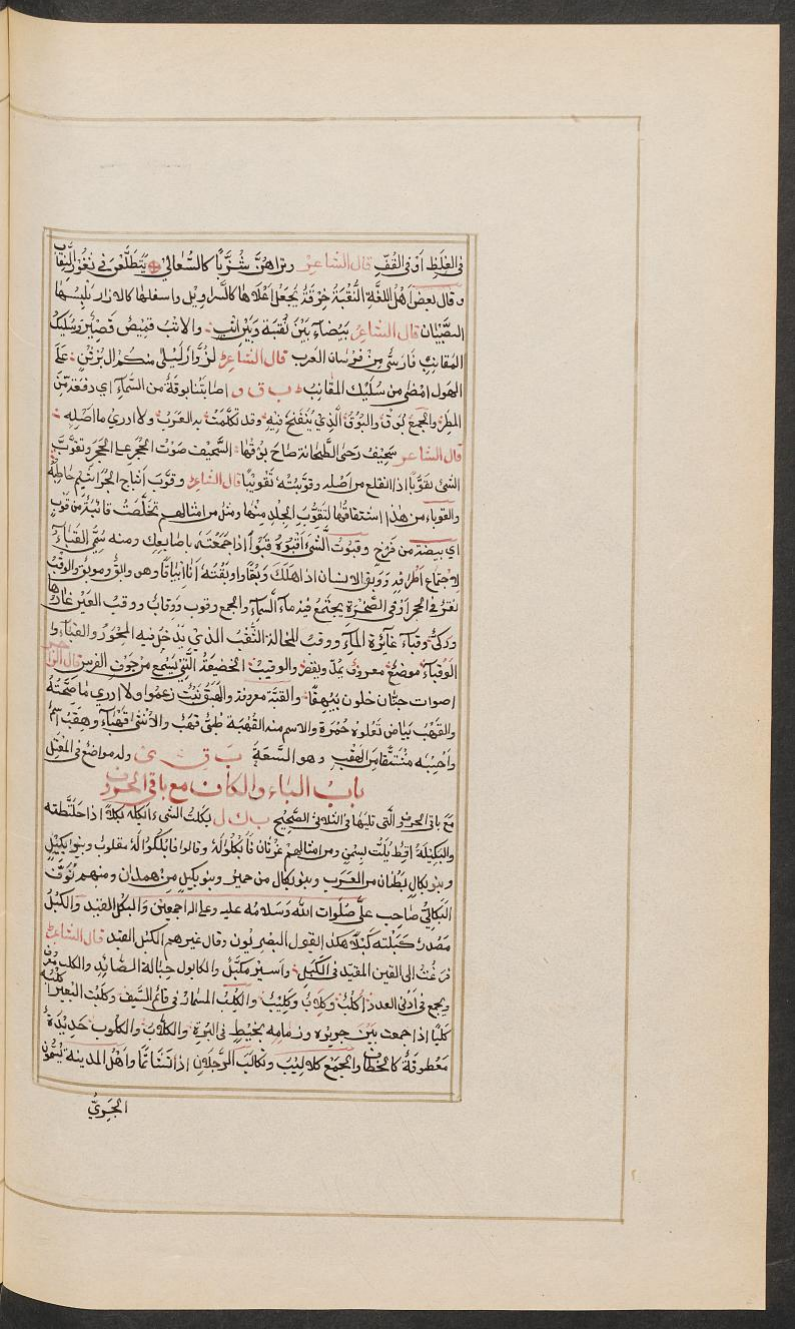 في الغلظ أو في القفّ قال الشاعر وتراهنّ شُزَّبًا كالسَّعالي يتطلّعن في ثغور النِّقاب
وقال بعض أهل اللغة النُّقبة خرقة يجعل أعلاها كالسراويل وأسفلها كالازار تلبسها
الصبيان قال الشاعر بيضاء بين نُقبة وبين إتب والاتب قميص قصير وسُليك
المقانب فارسٌ من فرسان العرب قال الشاعر لزُوّار ليلى منكم آل بُرثن على
الهول امضى من سُليك المقانب ب ق و اصابتنا بوقة من السماء اي دفعة من
المطر والجمع بُوَق والبُوق الذي يُنفخ فيه وقد تكلمت به العرب ولا ادري ما اصله
قال الشاعر سحيف رحى الطحانة صاح بوقها السحيف صوت الحجر على الحجر وتقوّب
الشئ تقوّبًا اذا انقلع من اصله وقوّبته تقويبًا قال الشاعر وقوّب اثباج
والقوباء من هذا اشتقاقها لتقوّب الجلد منها ومثل من امثالهم تخلّصت قائبة من قوب
اي بيضة من فرخ وقبوت الشئ اقبوه قبوًا اذا جمعته باصابعك ومنه سُمّي القباء
لاجتماع اطرافه ووبق الانسان اذا هلك وبقا واوبقته انا ايباقًا وهو وابق وموبق والوقب
نقرٌ في الحجر أو في الصخرة يجتمع فيه ماء السماء والجمع وقوب ووقاب ووقب العين غارها
وركيّ وقباء غائرة الماء ووقب المحالة الثقب الذي يدخل فيه المحور والقباء وا
الوقباء موضع معروف يمدّ ويقصر والوقيب الخضيعة التي تسمع من جوف الفرس قال الراجز
اصوات حجّان خلون بيهقا والقبّة معروفة والهَبَق نبت زعموا ولا ادري ما صحّته
والقهب بياض تعلوه حمرة والاسم منه القهبة ظبي قهب والانثى قهباء وهقب اسمٌ
واحسبه مشتقًا من الهقب وهو السعة ب ق ي وله مواضع في المعتل
باب الباء والكاف مع باقي الحروف
مع باقي الحروف التي تليها في الثلاثي الصحيح ب ك ل بكلت الشيء ابكله بكلاً اذا خلطته
والبكيلة اقط يُلتّ بسمن ومن امثالهم غرثان فابكلوا له وقالوا فابلكوا له مقلوب وبنو بكيل
وبنو بكال بطنان من العرب وبنو بكال من حمير وبنو بكيل من همدان ومنهم نوف
البكالي صاحب علي صلوات الله وسلامه عليه وعلى آله اجمعين والبكل القيد والكبل
مصدر كبلته كبلاً هكذا القول البصريون وقال غيرهم الكبل القيد قال الشاعر
فرغت الى القين المقيد في الكبل وأسير مكبّل والكابول حبالة الصائد والكلب معروف
ويجمع في أدنى العدد أكلبٌ وكلابٌ وكليبٌ والكلب المسمار في قائم السيف وكلبت البعير أكلبه
كلبًا اذا جمعت بين جريره وزمامه بخيط في البُرة والكلّاب والكلّوب حديدة
معطوفة كالخطاف والجمع كلاليب وتكالب الرجلان اذا تشاتما واهل المدينة يسمّون
الجري